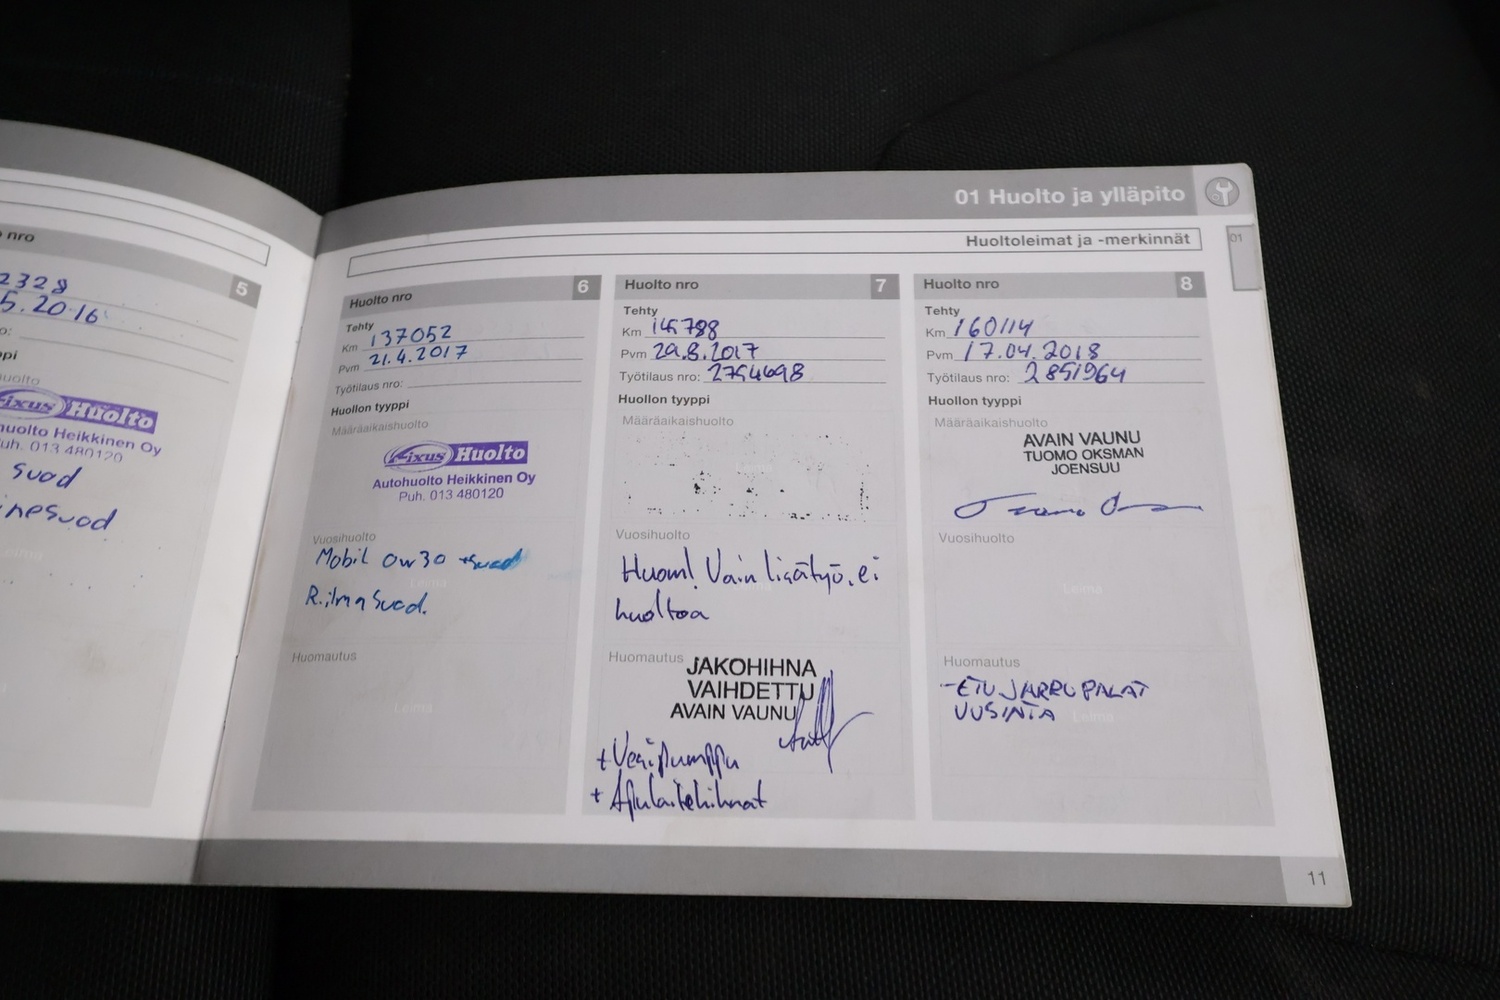 01 Huolto ja ylläpito
Huoltoleimat ja -merkinnät
01
nro
5
2328
5.2016
o:
pi
uolto
Fixus Huolto
huolto Heikkinen Oy
uh. 013 480120
suod
inesuod
Leima
Huolto nro
6
Tehty
Km 137052
Pvm 21.4.2017
Työtilaus nro:
Huollon tyyppi
Määräaikaishuolto
Fixus Huolto
Autohuolto Heikkinen Oy
Puh. 013 480120
Vuosihuolto
Mobil 0w30 +suod
Leima
R.ilmasuod.
Huomautus
Leima
Huolto nro
7
Tehty
Km 145788
Pvm 29.8.2017
Työtilaus nro: 2754698
Huollon tyyppi
Määräaikaishuolto
Leima
Vuosihuolto
Huom! Vain lisätyö, ei
Leima
huoltoa
Huomautus
JAKOHIHNA
VAIHDETTU
AVAIN VAUNU
+ Vesipumppu
+ Apulaitehihnat
Huolto nro
8
Tehty
Km 160114
Pvm 17.04.2018
Työtilaus nro: 2851964
Huollon tyyppi
Määräaikaishuolto
AVAIN VAUNU
TUOMO OKSMAN
JOENSUU
Vuosihuolto
Leima
Huomautus
-ETUJARRUPALAT
UUSINTA
Leima
11